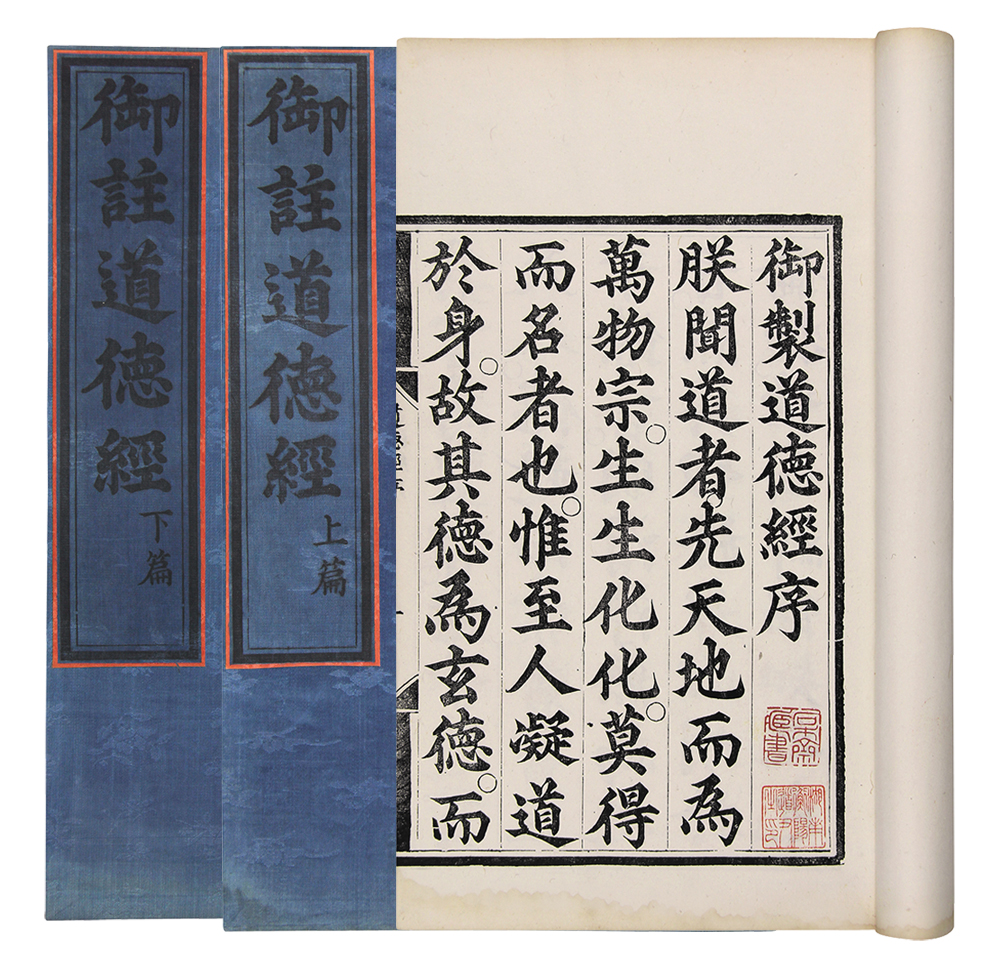 御製道徳經序
朕聞道者先天地而為
萬物宗○生生化化○莫得
而名者也○惟至人凝道
於身○故其徳為玄徳○而
御註道徳經
上篇
御註道徳經
下篇